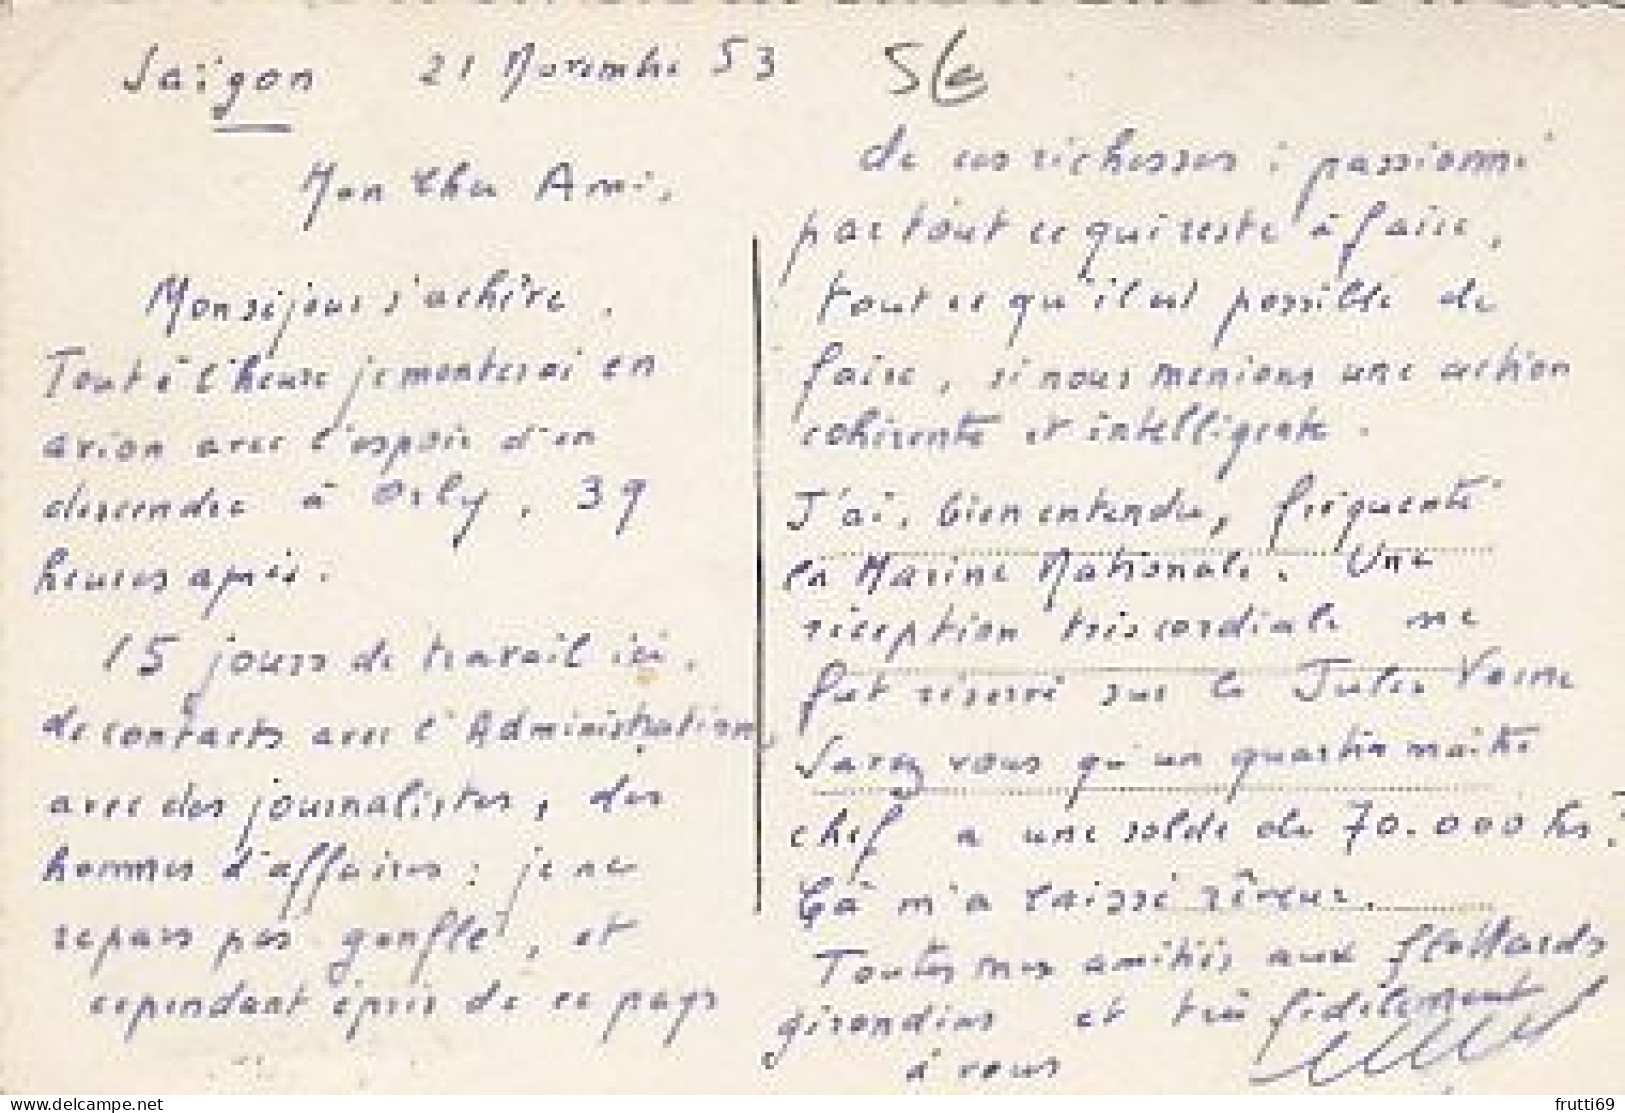 Saïgon 21 Novembre 53
Mon cher Ami,
Mon séjour s'achève.
Tout à l'heure je monterai en
avion avec l'espoir d'en
descendre à Orly, 39
heures après.
15 jours de travail ici,
de contacts avec l'Administration,
avec des journalistes, des
hommes d'affaires : je ne
repars pas gonflé, et
cependant épris de ce pays
5€
de ses richesses ; passionné
par tout ce qui reste à faire,
tout ce qu'il est possible de
faire, si nous menions une action
cohérente et intelligente.
J'ai, bien entendu, fréquenté
la Marine Nationale. Une
réception très cordiale me
fut réservé sur le Jules Verne
Savez vous qu'un quartier maître
chef a une solde de 70.000 frs ?
Çà m'a laissé rêveur.
Toutes mes amitiés aux flottards
girondins et très fidèlement
à vous
delcampe.net
frutti69